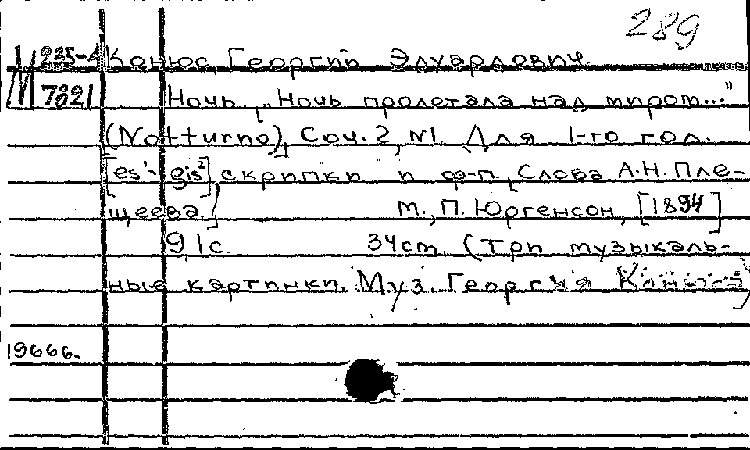 289
М 225-4 Конюс, Георгий Эдуардович.
7321 Ночь. „Ночь пролетала над миром..."
(Notturno), Соч. 2, №1. Для 1-го гол.
[es¹-gis²], скрипки и ф-п. [Слова А.Н. Пле-
щеева]. М., П. Юргенсон, [1894]
9, 1с. 34cm. (Три музыкаль-
ные картинки. Муз. Георгия Конюса)
1966б.